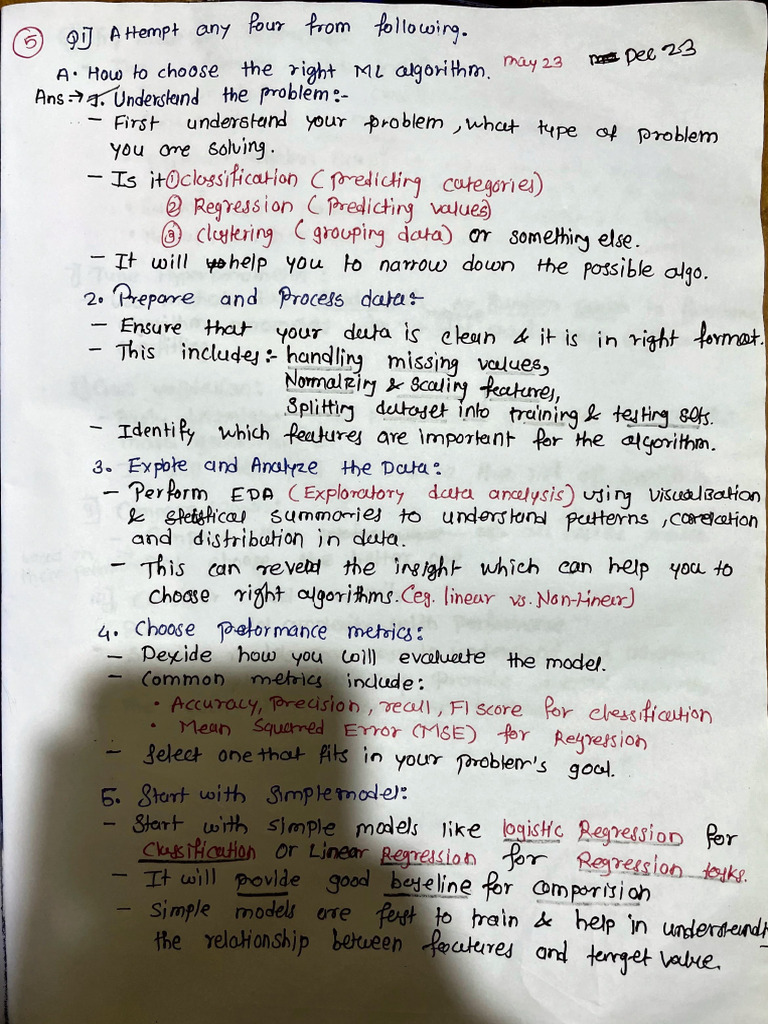 5 Q1] Attempt any four from following.
A. How to choose the right ML algorithm. May 23 Dec 23
Ans :→ 1. Understand the problem :-
- First understand your problem, what type of problem
you are solving.
- Is it ① classification (predicting categories)
② Regression (Predicting values)
③ clustering (grouping data) or something else.
- It will help you to narrow down the possible algo.
2. Prepare and Process data :-
- Ensure that your data is clean & it is in right format.
- This includes :- handling missing values,
Normalizing & scaling features,
Splitting dataset into training & testing sets.
- Identify which features are important for the algorithm.
3. Explore and Analyze the Data :
- Perform EDA (Exploratory data analysis) using visualization
& statistical summaries to understand patterns, correlation
and distribution in data.
- This can reveal the insight which can help you to
choose right algorithms. (eg. linear vs. Non-Linear)
4. Choose Performance metrics :
- Decide how you will evaluate the model.
- Common metrics include :
• Accuracy, Precision, recall, F1 score for classification
• Mean Squared Error (MSE) for Regression
- Select one that fits in your problem's goal.
5. Start with Simple model :
- Start with simple models like logistic Regression for
Classification or Linear Regression for Regression tasks.
- It will provide good baseline for comparision
- Simple models are fast to train & help in understand
the relationship between features and target value.